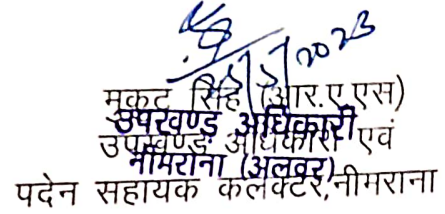 मुकट सिंह (आर.ए.एस)
उपखण्ड अधिकारी
उपखण्ड अधिकारी एवं
नीमराना (अलवर)
पदेन सहायक कलेक्टर,नीमराना